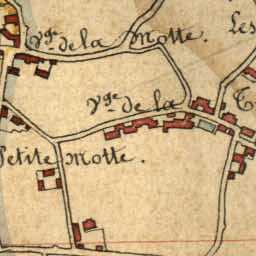 Vge de la Motte.
Les
Vge de la
Petite Motte.